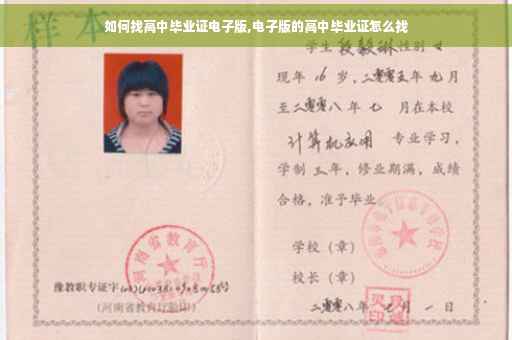 如何找高中毕业证电子版,电子版的高中毕业证怎么找
样本
学生段毅琳性别女
现年16岁,二零零五年九月
至二零零八年七 月在本校
计算机应用 专业学习,
学制三年,修业期满,成绩
合格,准予毕业
学校(章)
校长(章)
二零零八年 月一日
河南省教育厅
豫教职专证字
(河南省教育厅验印)